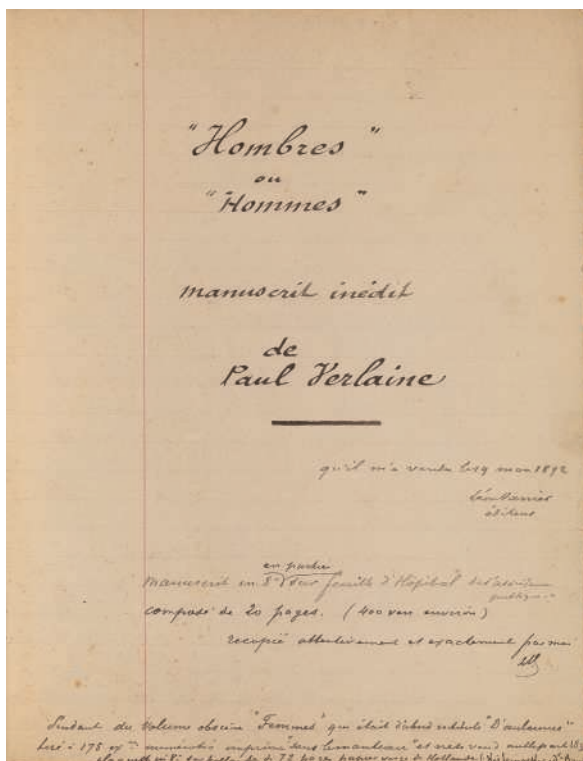 "Hombres"
ou
"Hommes"
manuscrit inédit
de
Paul Verlaine
qu'il m'a vendu le 19 mars 1892
Léon Vanier
éditeur
en partie
manuscrit in 8° sur feuille d'Hôpital de l'assistance
publique
composé de 20 pages. (400 vers environ)
recopié attentivement et exactement par moi
Pendant du volume obscène "Femmes" qui était d'abord intitulé "D'aulcunes"
tiré à 175 ex numérotés imprimé "sous le manteau" et vendu nulle part
72 pages papier de Hollande